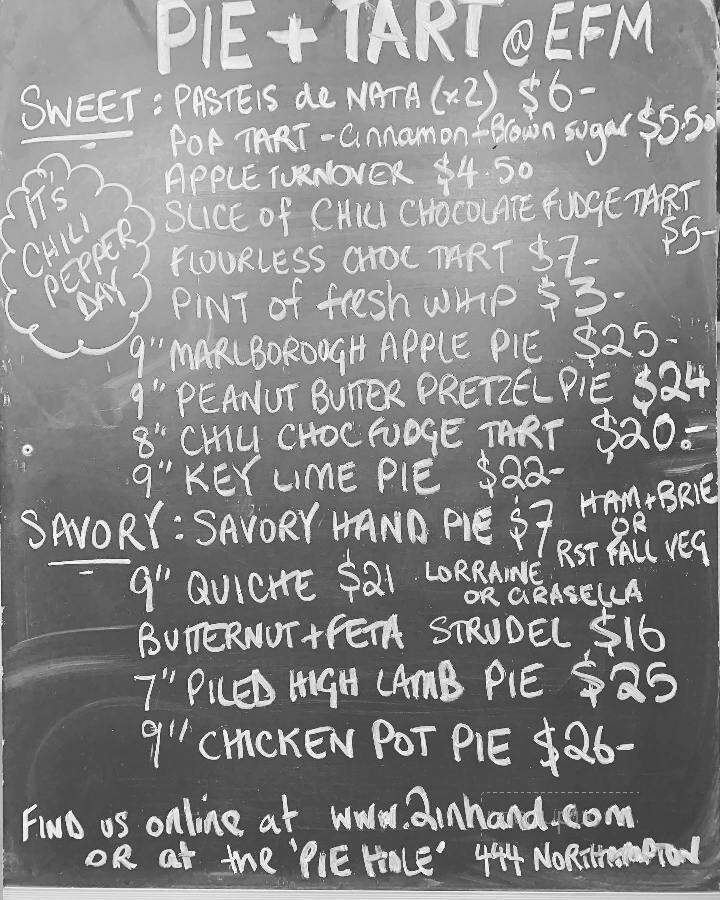 PIE + TART @ EFM
SWEET: PASTEIS de NATA (x2) $6-
POP TART - Cinnamon + Brown sugar $5.50
APPLE TURNOVER $4.50
SLICE of CHILI CHOCOLATE FUDGE TART
$5-
IT'S
CHILI
PEPPER
DAY
FLOURLESS CHOC TART $7-
PINT of fresh WHIP $3-
9" MARLBOROUGH APPLE PIE $25-
9" PEANUT BUTTER PRETZEL PIE $24
8" CHILI CHOC FUDGE TART $20.-
9" KEY LIME PIE $22-
SAVORY: SAVORY HAND PIE $7 HAM + BRIE
OR
RST FALL VEG
9" QUICHE $21 LORRAINE
OR GIRASELLA
BUTTERNUT + FETA STRUDEL $16
7" PILED HIGH LAMB PIE $25
9" CHICKEN POT PIE $26-
FIND US online at www.2inhand.com
OR at the 'PIE HOLE' 444 NORTHAMPTON